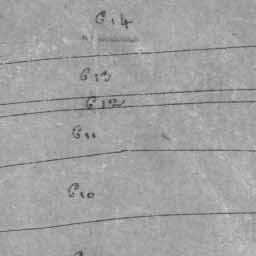 C14
C13
C12
C11
C10